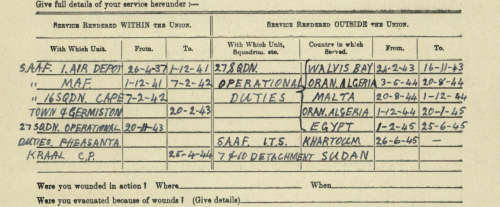 Give full details of your service hereunder :—
SERVICE RENDERED WITHIN THE UNION. SERVICE RENDERED OUTSIDE THE UNION.
With Which Unit. From. To. With Which Unit, Squadron, etc. Country in which Served. From. To.
S.A.A.F. 1. AIR DEPOT 26-4-37 1-12-41 27 SQDN. WALVIS BAY 21-2-43 16-11-43
" MAF. 1-12-41 7-2-42 OPERATIONAL ORAN. ALGERIA 3-6-44 20-8-44
" 16 SQDN. CAPE 7-2-42 DUTIES MALTA 20-8-44 1-12-44
TOWN & GERMISTON 20-2-43 ORAN. ALGERIA 1-12-44 20-1-45
27 SQDN. OPERATIONAL 20-11-43 EGYPT 1-2-45 25-6-45
DUTIES. PHEASANTA SAAF. I.T.S. KHARTOUM 26-6-45 —
KRAAL C.P. 25-4-44 7 & 10 DETACHMENT SUDAN
Were you wounded in action ? Where When
Were you evacuated because of wounds ? (Give details)